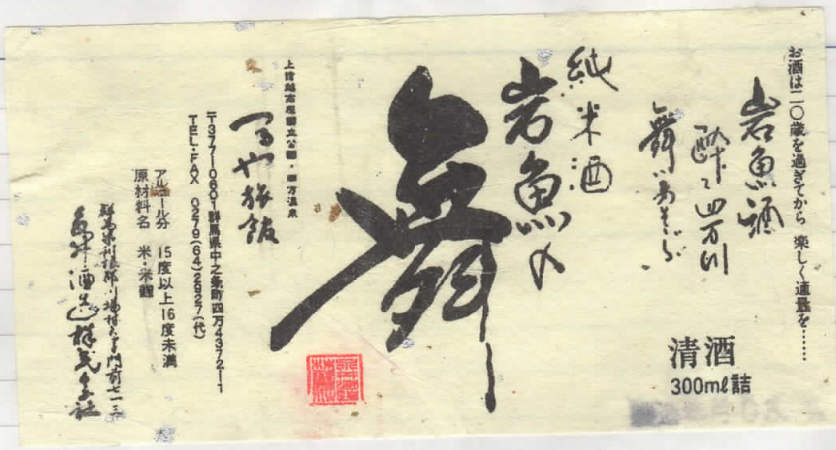 お酒は二〇歳を過ぎてから 楽しく適量を……
岩魚酒
酔て四万川
舞いあそぶ
清酒
300ml詰
純米酒
岩魚の
舞
上信越高原国立公園・四万温泉
つるや旅館
〒377-0601群馬県中之条町四万4372-1
TEL・FAX 0279(64)2927(代)
アルコール分 15度以上16度未満
原材料名 米・米麹
群馬県利根郡川場村大字門前七一三
永井酒造株式会社